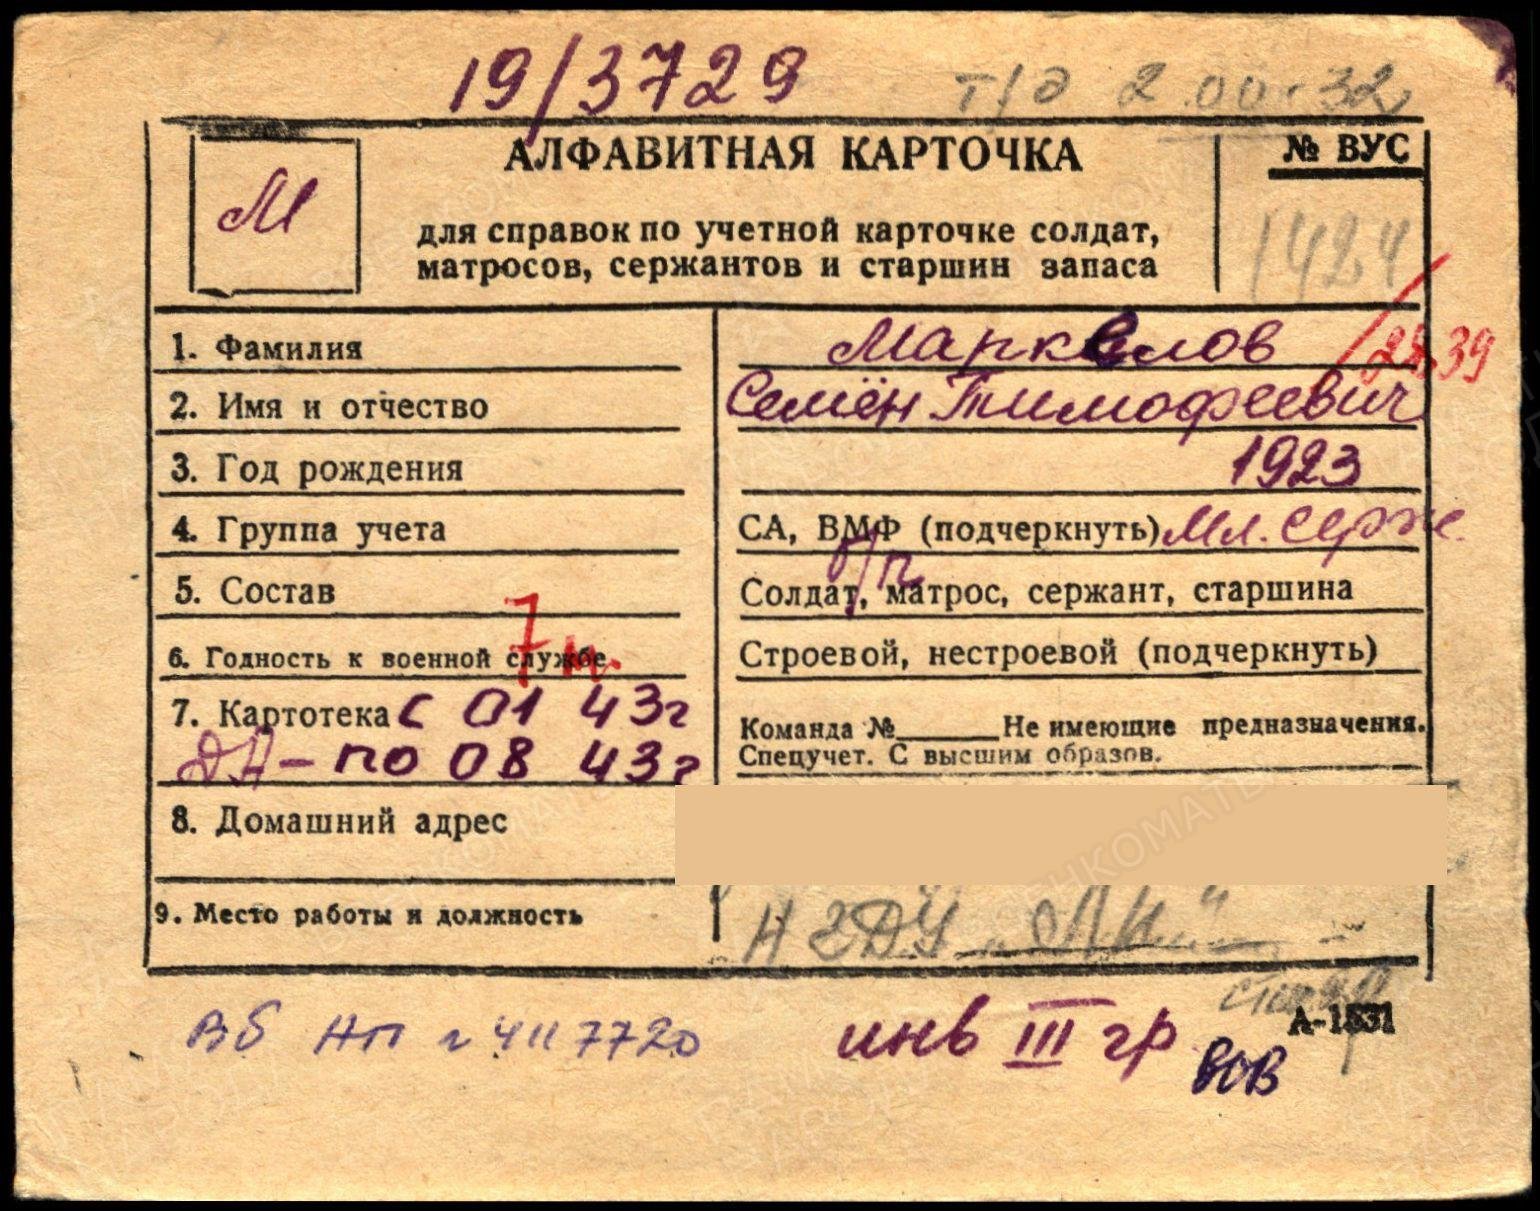 19/3729 т/д 2.00.32
АЛФАВИТНАЯ КАРТОЧКА
№ ВУС
М
1424
для справок по учетной карточке солдат,
матросов, сержантов и старшин запаса
1. Фамилия Маркелов
39
2. Имя и отчество Семён Тимофеевич
3. Год рождения 1923
4. Группа учета СА, ВМФ (подчеркнуть) Мл. серж.
5. Состав Солдат, матрос, сержант, старшина
6. Годность к военной службе Строевой, нестроевой (подчеркнуть)
7. Картотека с 01 43г
по 08 43г
Команда № Не имеющие предназначения.
Спецучет. С высшим образов.
8. Домашний адрес
9. Место работы и должность НГДУ
А-1831
Вб НП г 4117720 инв III гр
ВОВ